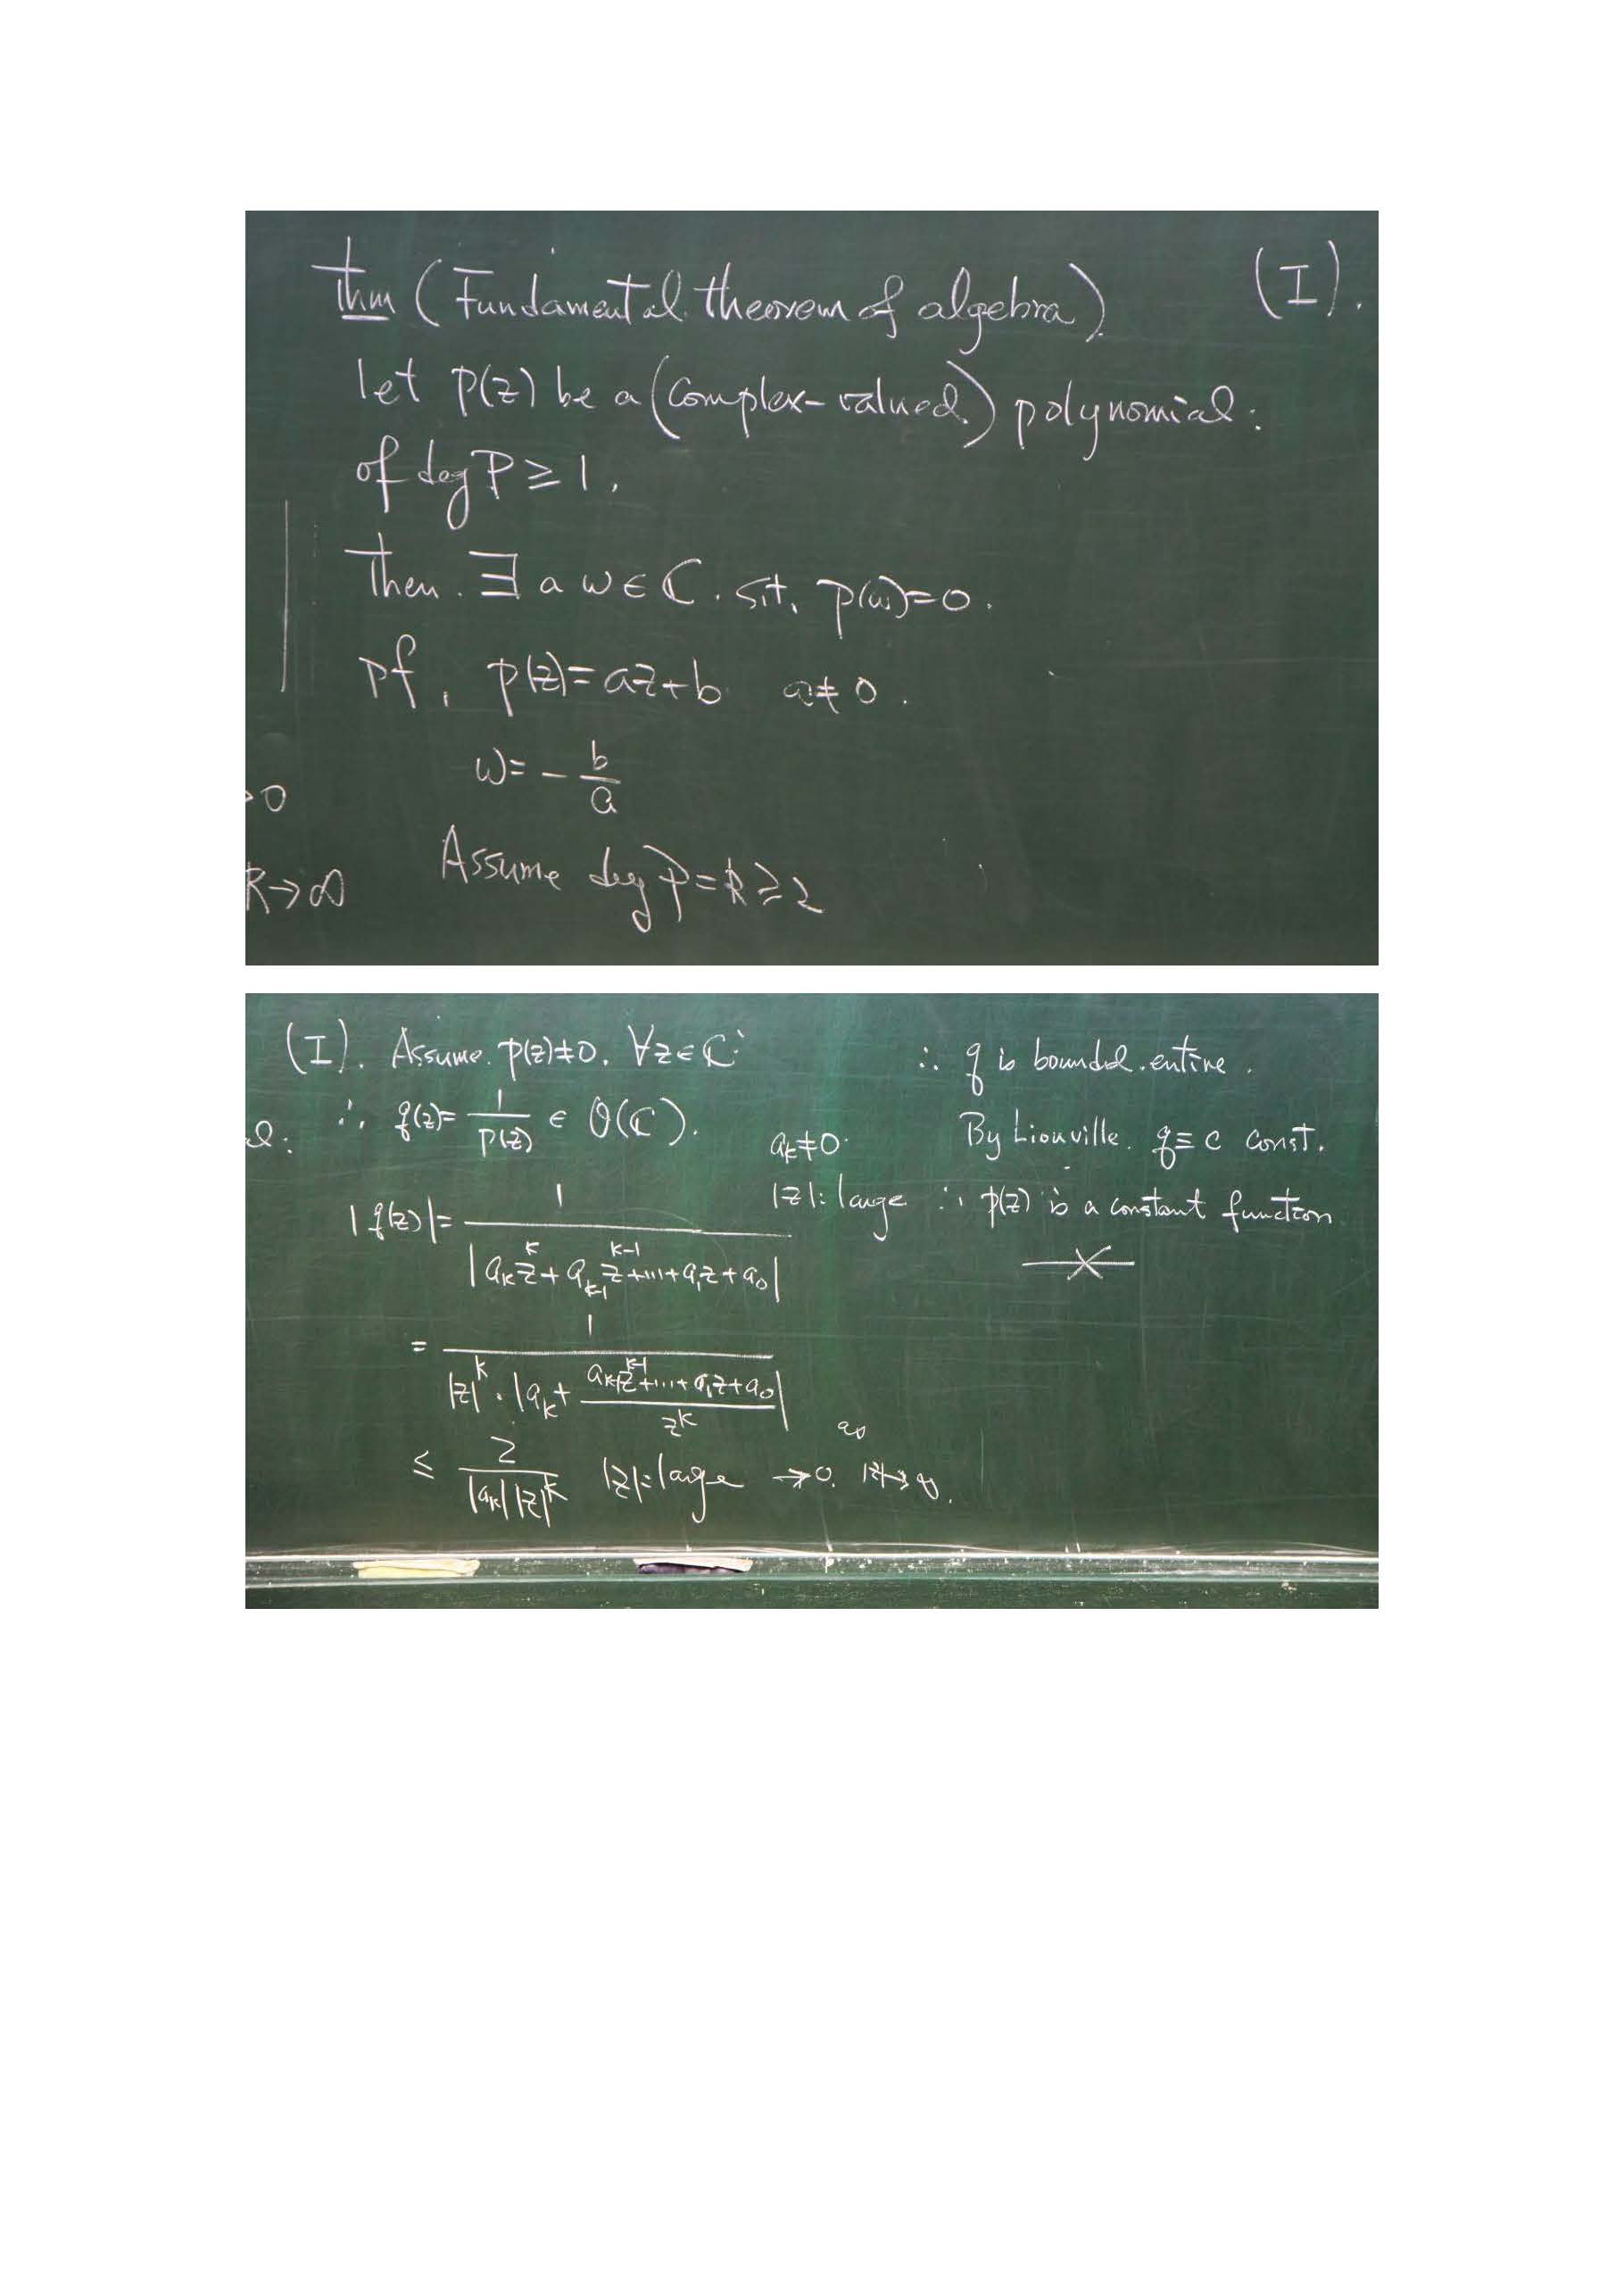 Thm (Fundamental theorem of algebra) (I).
let p(z) be a (complex-valued) polynomial:
of deg P ≥ 1.
Then ∃ a w ∈ ℂ. s.t. p(w)=0.
pf. p(z)=az+b a≠0.
w= - b/a
→0
R→∞ Assume deg P = k ≥ 2
(I). Assume. p(z)≠0. ∀z∈ℂ
∴ q(z)= 1/p(z) ∈ O(ℂ).
l:
a_k≠0
|z|: large
|q(z)|= 1/|a_k z^k + a_{k-1} z^{k-1} +...+ a_1 z + a_0|
= 1/(|z|^k · |a_k + (a_{k-1} z^{k-1} +...+ a_1 z + a_0)/z^k|)
≤ 2/(|a_k| |z|^k) |z|: large →0. as |z|→∞.
∴ q is bounded. entire.
By Liouville. q≡c const.
∴ p(z) is a constant function